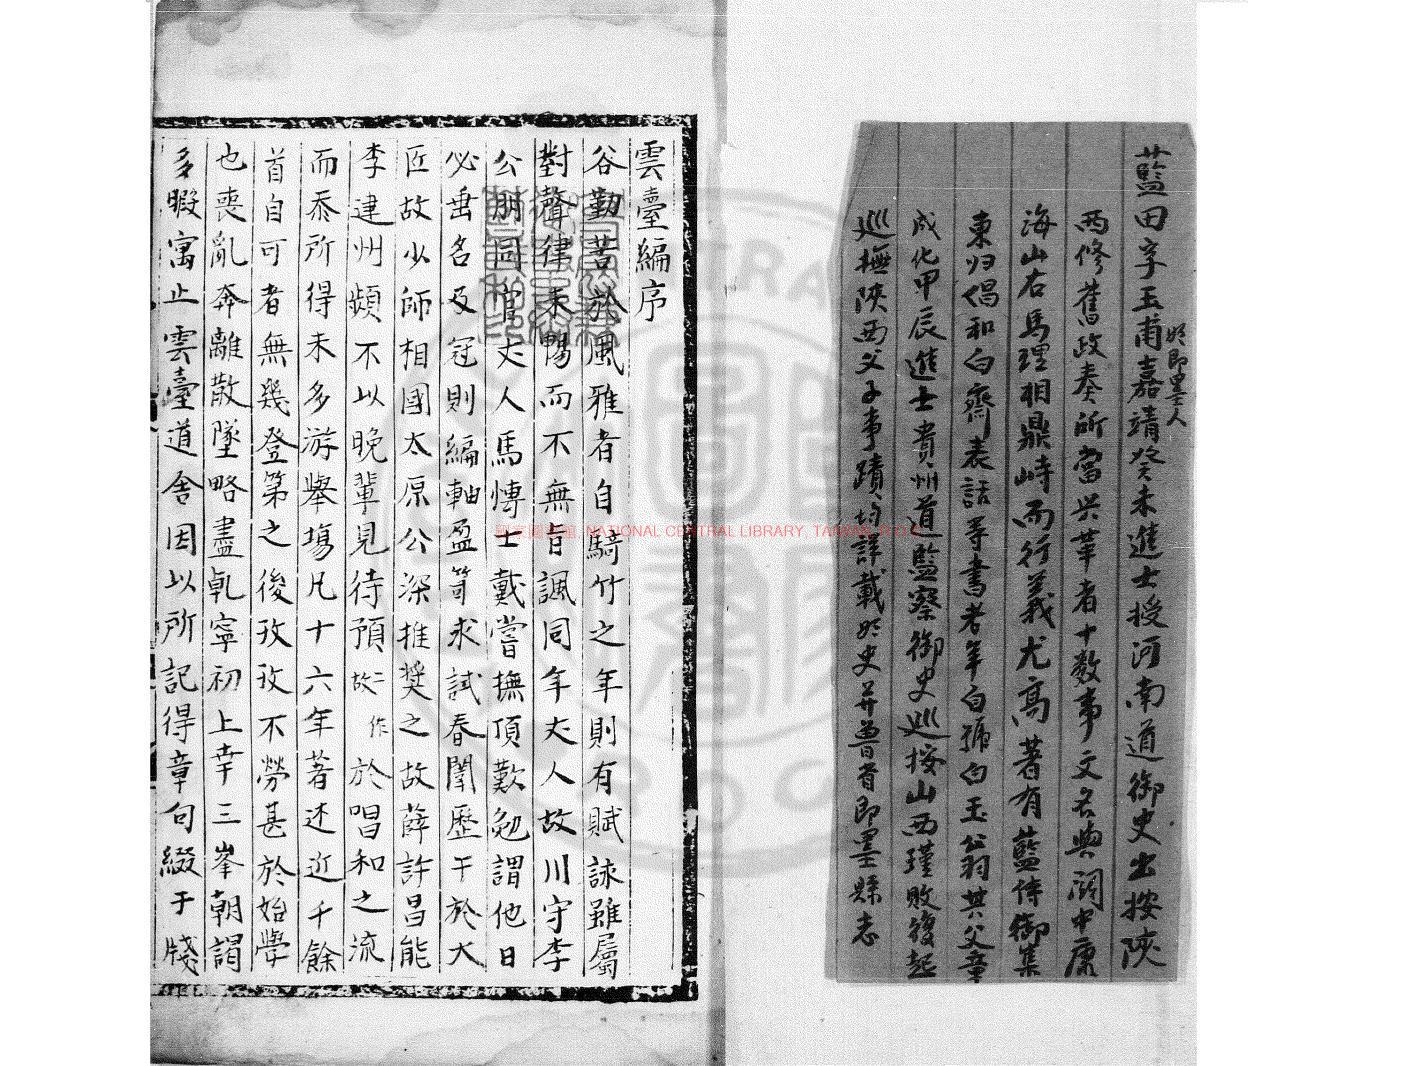 藍田字玉甫嘉靖癸未進士授河南道御史出按陝
於即墨人
西修舊政奏所當興革者十數事文名與關中康
海山右馬理相鼎峙而行義尤高著有藍侍御集
東归倡和白齋表話等書老年白號白玉公羽其父章
成化甲辰進士貴州道監察御史巡按山西瑾敗後起
巡撫陝西父子事蹟均詳載於史并晉省即墨縣志
雲臺編序
谷勤苦於風雅者自騎竹之年則有賦詠雖屬
對聲律未暢而不無旨諷同年丈人故川守李
公朋同官丈人馬博士戴嘗撫頂歎勉謂他日
必垂名及冠則編軸盈笥求試春闈歷千於大
匠故少師相國太原公深推奬之故薛許昌能
李建州頻不以晚輩見待預二作故於唱和之流
而忝所得未多游舉塲凡十六年著述近千餘
首自可者無幾登第之後孜孜不勞甚於始學
也喪亂奔離散墜略盡乹寧初上幸三峯朝謁
多暇寓止雲臺道舍因以所記得章句綴于牋
國家圖書館 NATIONAL CENTRAL LIBRARY, TAIWAN, R.O.C